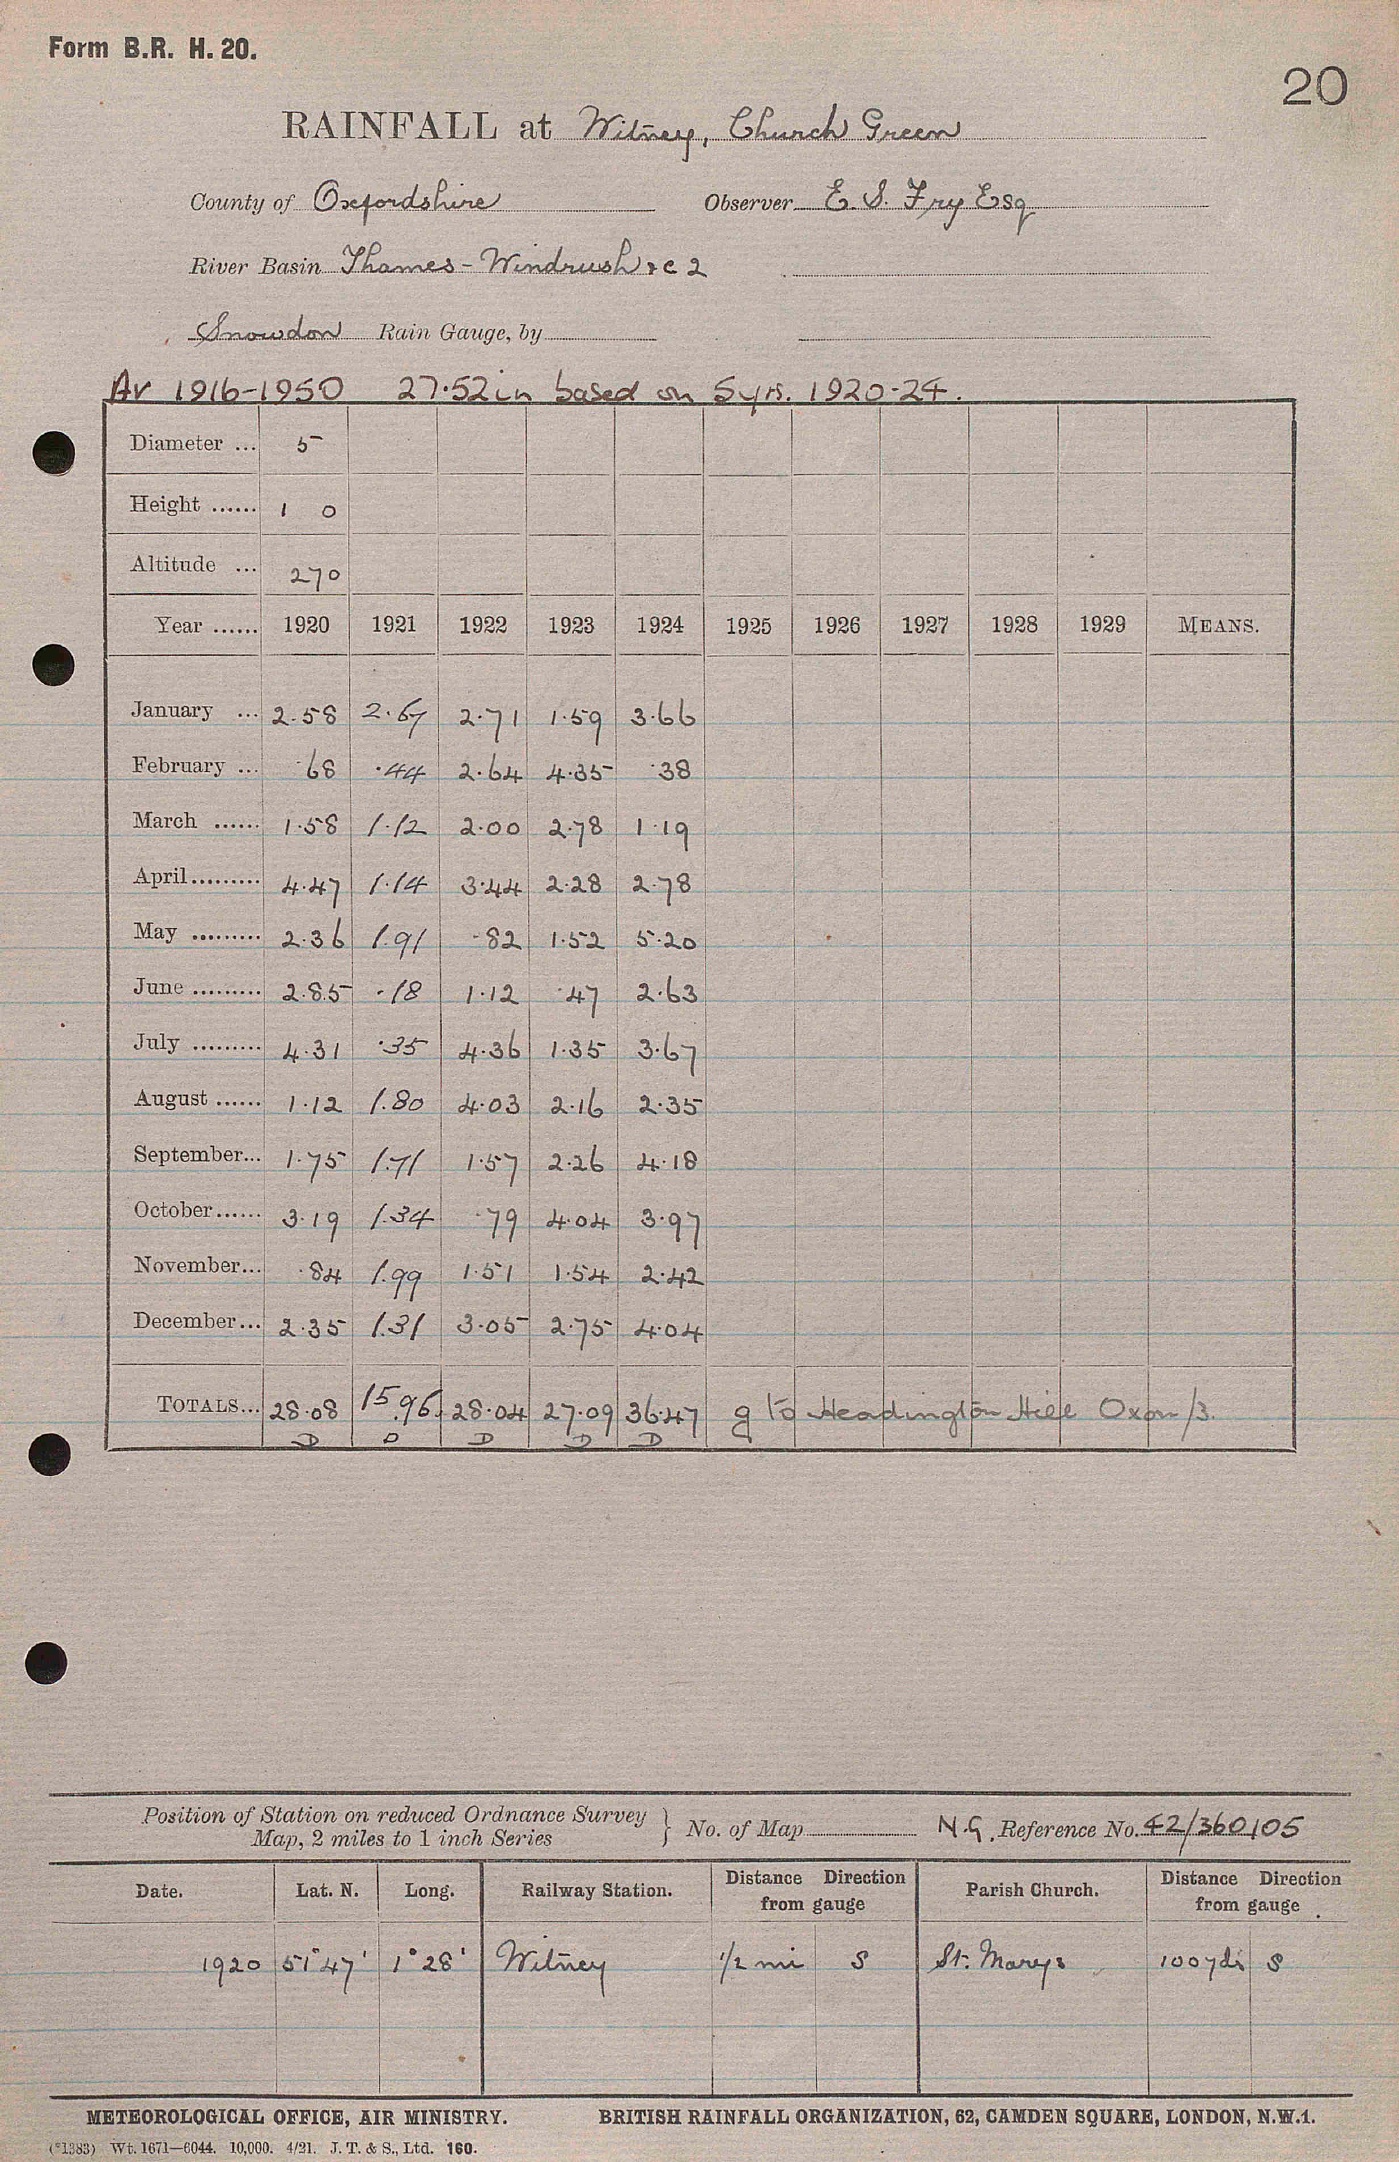 Form B.R. H. 20.
20
RAINFALL at Witney, Church Green
County of Oxfordshire Observer E. S. Fry Esq
River Basin Thames - Windrush & C 2
Snowdon Rain Gauge, by
Av 1916-1950 27.52 in based on 5 yrs. 1920-24.
Diameter ... 5
Height ...... 1 0
Altitude ... 270
Year ...... 1920 1921 1922 1923 1924 1925 1926 1927 1928 1929 MEANS.
January ... 2.58 2.67 2.71 1.59 3.66
February ... .68 .44 2.64 4.35 .38
March ...... 1.58 1.12 2.00 2.78 1.19
April ......... 4.47 1.14 3.44 2.28 2.78
May ......... 2.36 1.91 .82 1.52 5.20
June ......... 2.85 .18 1.12 .47 2.63
July ......... 4.31 .35 4.36 1.35 3.67
August ...... 1.12 1.80 4.03 2.16 2.35
September... 1.75 1.71 1.57 2.26 4.18
October...... 3.19 1.34 .79 4.04 3.97
November... .84 1.99 1.51 1.54 2.42
December... 2.35 1.31 3.05 2.75 4.04
TOTALS... 28.08 15.96 28.04 27.09 36.47 g to Headington Hill Oxon /3.
D D D D D
Position of Station on reduced Ordnance Survey
Map, 2 miles to 1 inch Series } No. of Map N.G. Reference No. 42/360105
Date. Lat. N. Long. Railway Station. Distance Direction from gauge Parish Church. Distance Direction from gauge
1920 51°47' 1°28' Witney 1/2 mi S St. Marys 100 yds S
METEOROLOGICAL OFFICE, AIR MINISTRY. BRITISH RAINFALL ORGANIZATION, 62, CAMDEN SQUARE, LONDON, N.W.1.
(*1383) Wt. 1671—6044. 10,000. 4/21. J. T. & S., Ltd. 160.